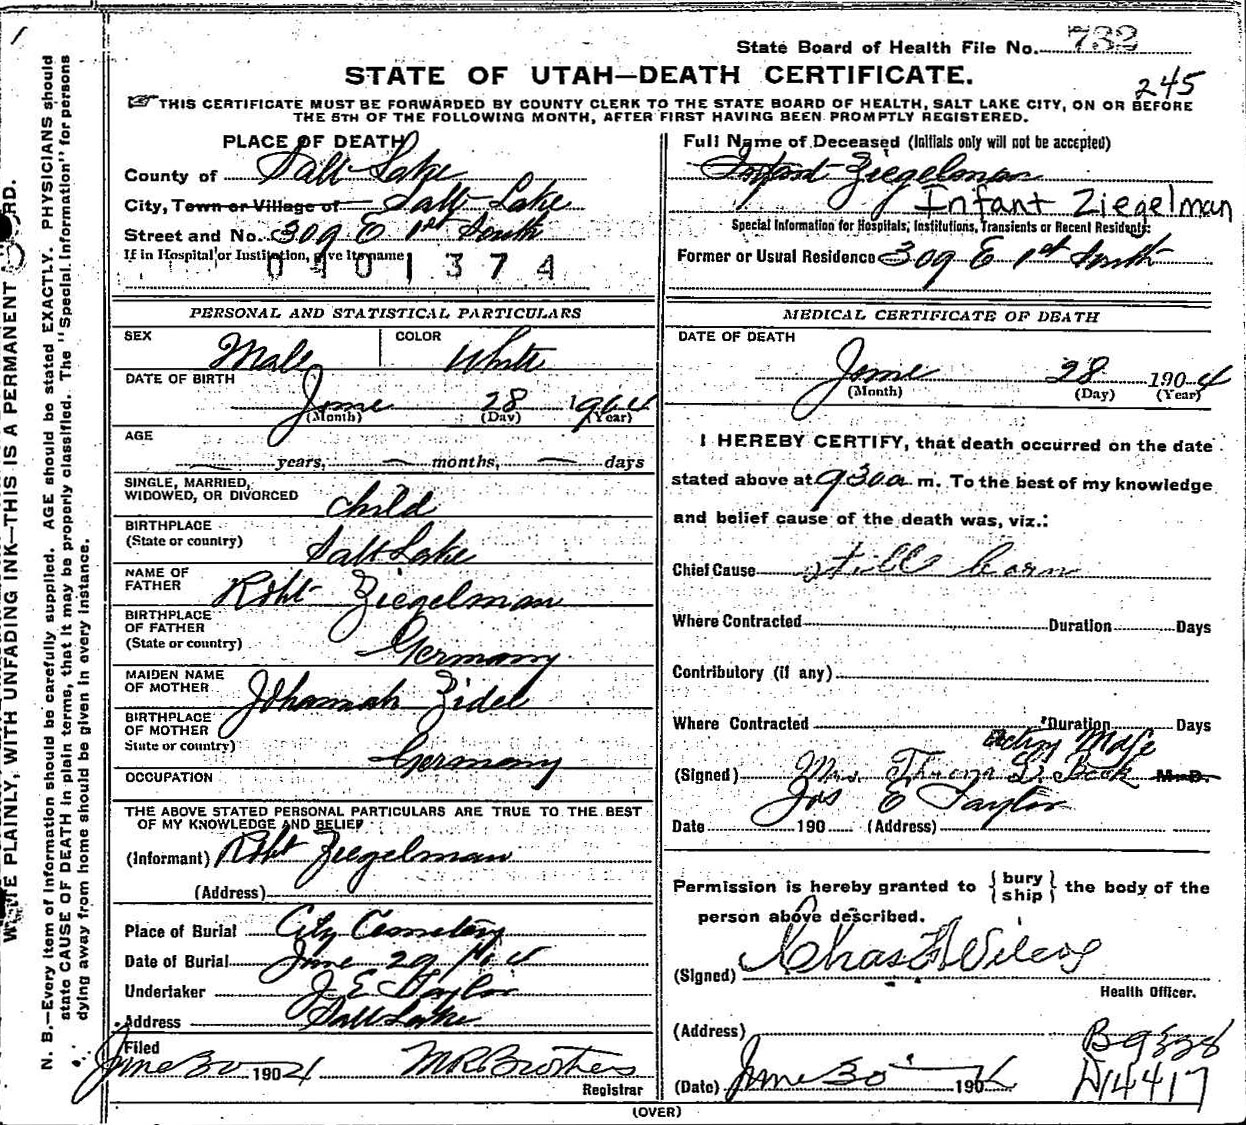 State Board of Health File No. 732
STATE OF UTAH—DEATH CERTIFICATE.
245
THIS CERTIFICATE MUST BE FORWARDED BY COUNTY CLERK TO THE STATE BOARD OF HEALTH, SALT LAKE CITY, ON OR BEFORE
THE 5TH OF THE FOLLOWING MONTH, AFTER FIRST HAVING BEEN PROMPTLY REGISTERED.
PLACE OF DEATH
County of Salt Lake
City, Town or Village of Salt Lake
Street and No. 309 E 1st South
If in Hospital or Institution, give its name
0401374
Full Name of Deceased (Initials only will not be accepted)
Infant Ziegelman
Infant Ziegelman
Special Information for Hospitals, Institutions, Transients or Recent Residents:
Former or Usual Residence 309 E 1st South
PERSONAL AND STATISTICAL PARTICULARS
SEX Male COLOR White
DATE OF BIRTH
June 28 1904
(Month) (Day) (Year)
AGE
— years, — months, — days
SINGLE, MARRIED,
WIDOWED, OR DIVORCED child
BIRTHPLACE
(State or country) Salt Lake
NAME OF
FATHER Robt Ziegelman
BIRTHPLACE
OF FATHER
(State or country) Germany
MAIDEN NAME
OF MOTHER Johannah Zidel
BIRTHPLACE
OF MOTHER
State or country) Germany
OCCUPATION
THE ABOVE STATED PERSONAL PARTICULARS ARE TRUE TO THE BEST
OF MY KNOWLEDGE AND BELIEF
(Informant) Robt Ziegelman
(Address)
Place of Burial City Cemetery
Date of Burial June 29 1904
Undertaker J E Taylor
Address Salt Lake
Filed
June 30 1904 Registrar
MEDICAL CERTIFICATE OF DEATH
DATE OF DEATH
June 28 1904
(Month) (Day) (Year)
I HEREBY CERTIFY, that death occurred on the date
stated above at 930a m. To the best of my knowledge
and belief cause of the death was, viz.:
Chief Cause still born
Where Contracted Duration Days
Contributory (if any)
Where Contracted Duration Days
acting
(Signed) Mrs. M.D.
Jos E Taylor
Date 190 (Address)
Permission is hereby granted to {bury ship} the body of the
person above described.
(Signed) Chas Wilcox
Health Officer.
(Address)
(Date) June 30 190
D14417
(OVER)
N. B.—Every item of information should be carefully supplied. AGE should be stated EXACTLY. PHYSICIANS should
state CAUSE OF DEATH in plain terms, that it may be properly classified. The "Special Information" for persons
dying away from home should be given in every instance.
PLAINLY, WITH UNFADING INK—THIS IS A PERMANENT